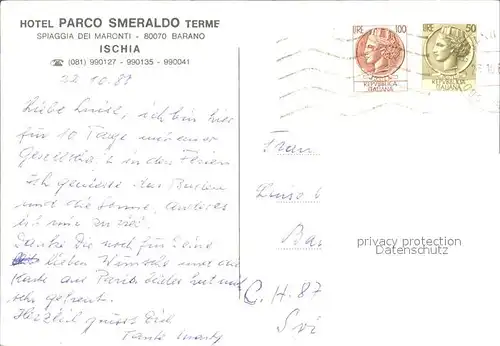 HOTEL PARCO SMERALDO TERME
SPIAGGIA DEI MARONTI - 80070 BARANO
ISCHIA
☎ (081) 990127 - 990135 - 990041
22.10.87
Liebe Luise, ich bin hier
für 10 Tage mit einer
in den Ferien
Ich geniesse das Baden
und die Sonne, anderes
ist mir zu viel.
Danke Dir noch für Deine
lieben Wünsche und die
Karte aus Paris
sehr gefreut.
Herzlich grüsst Dich
Tante
LIRE 100
REPVBBLICA
ITALIANA
LIRE 50
REPVBBLICA
ITALIANA
Frau
Luise
Ba
C.H. 87
Svi
privacy protection
Datenschutz